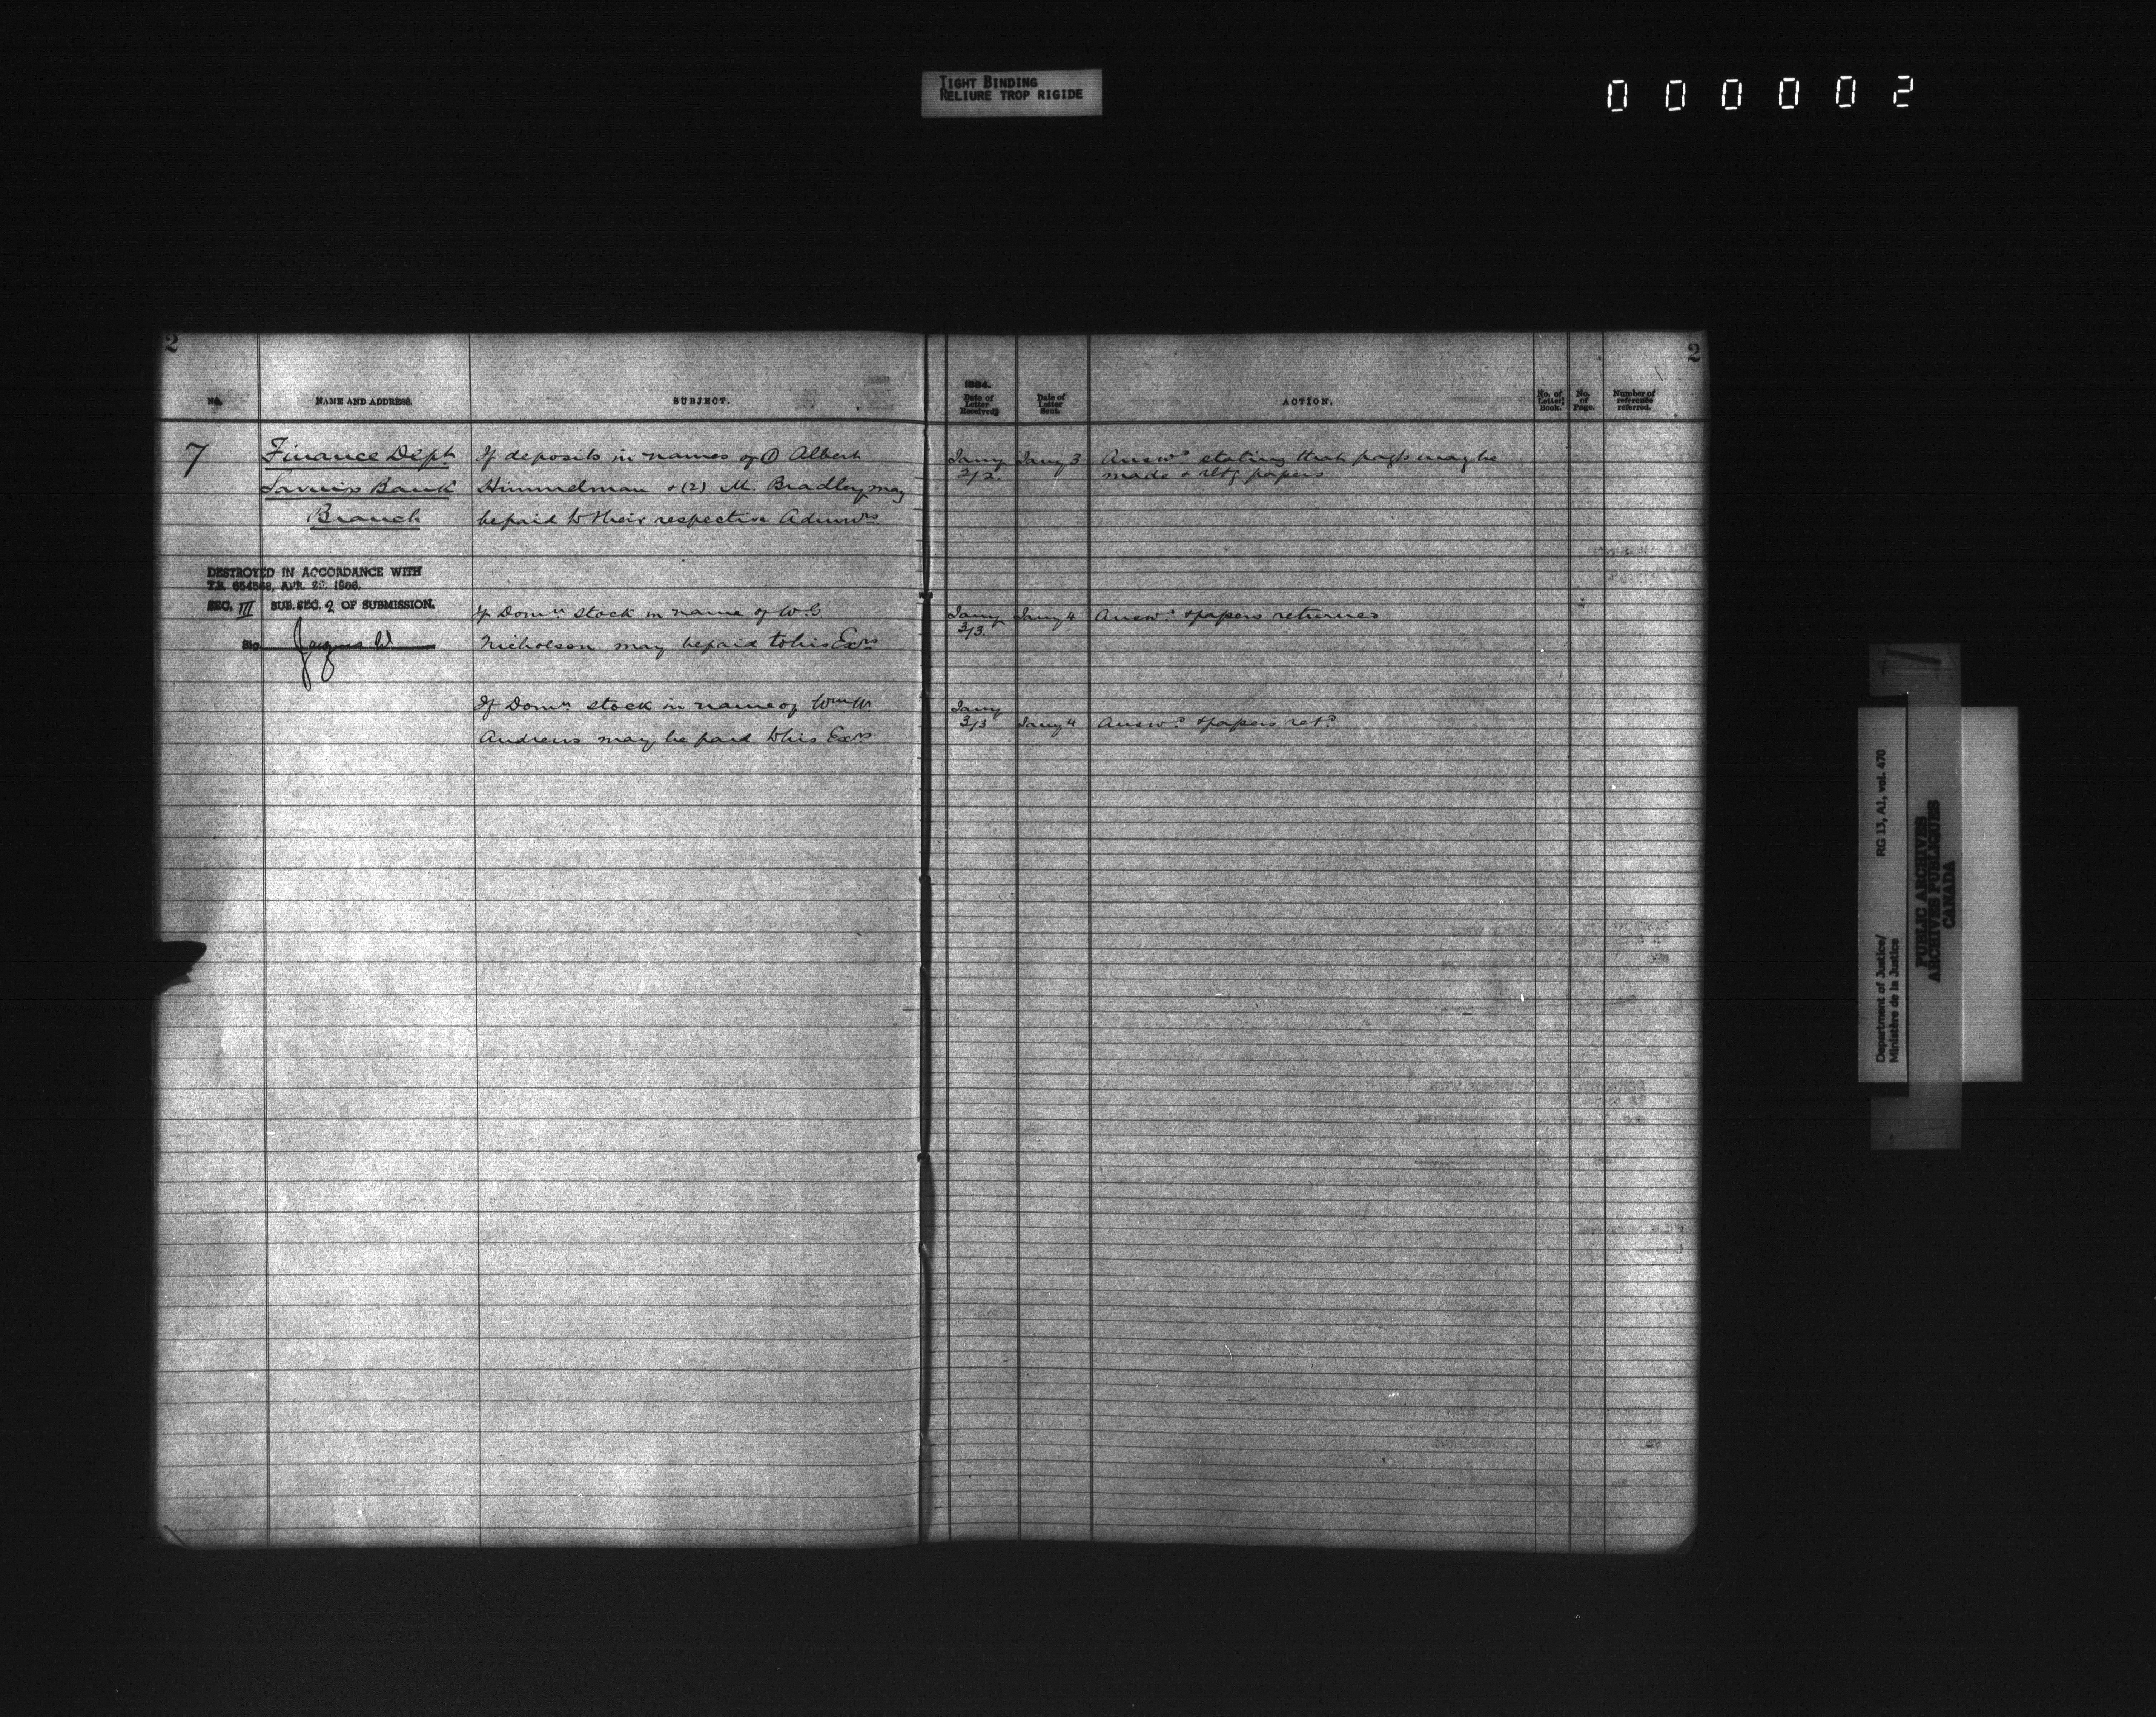 TIGHT BINDING
RELIURE TROP RIGIDE
000002
2
2
No.
NAME AND ADDRESS.
SUBJECT.
1884.
Date of Letter Received.
Date of Letter Sent.
ACTION.
No. of Letter Book.
No. of Page.
Number of reference referred.
7
Finance Dept
Savings Bank
Branch
If deposits in names of (1) Albert
Himmelman & (2) M. Bradley may
be paid to their respective Admors
Jany 2/2
Jany 3
Answd stating that payts may be
made & retg papers
DESTROYED IN ACCORDANCE WITH
T.B. 654568, APR. 29, 1966.
SEC. III SUB. SEC. 2 OF SUBMISSION.
Sig.
If Domn stock in name of W. G.
Nicholson may be paid to his Exrs
Jany 3/3
Jany 4
Answd & papers returned
If Domn stock in name of Wm W.
Andrews may be paid to his Exrs
Jany 3/3
Jany 4
Answd & papers retd
Department of Justice/
Ministère de la Justice
RG 13, A1, vol. 470
PUBLIC ARCHIVES
ARCHIVES PUBLIQUES
CANADA